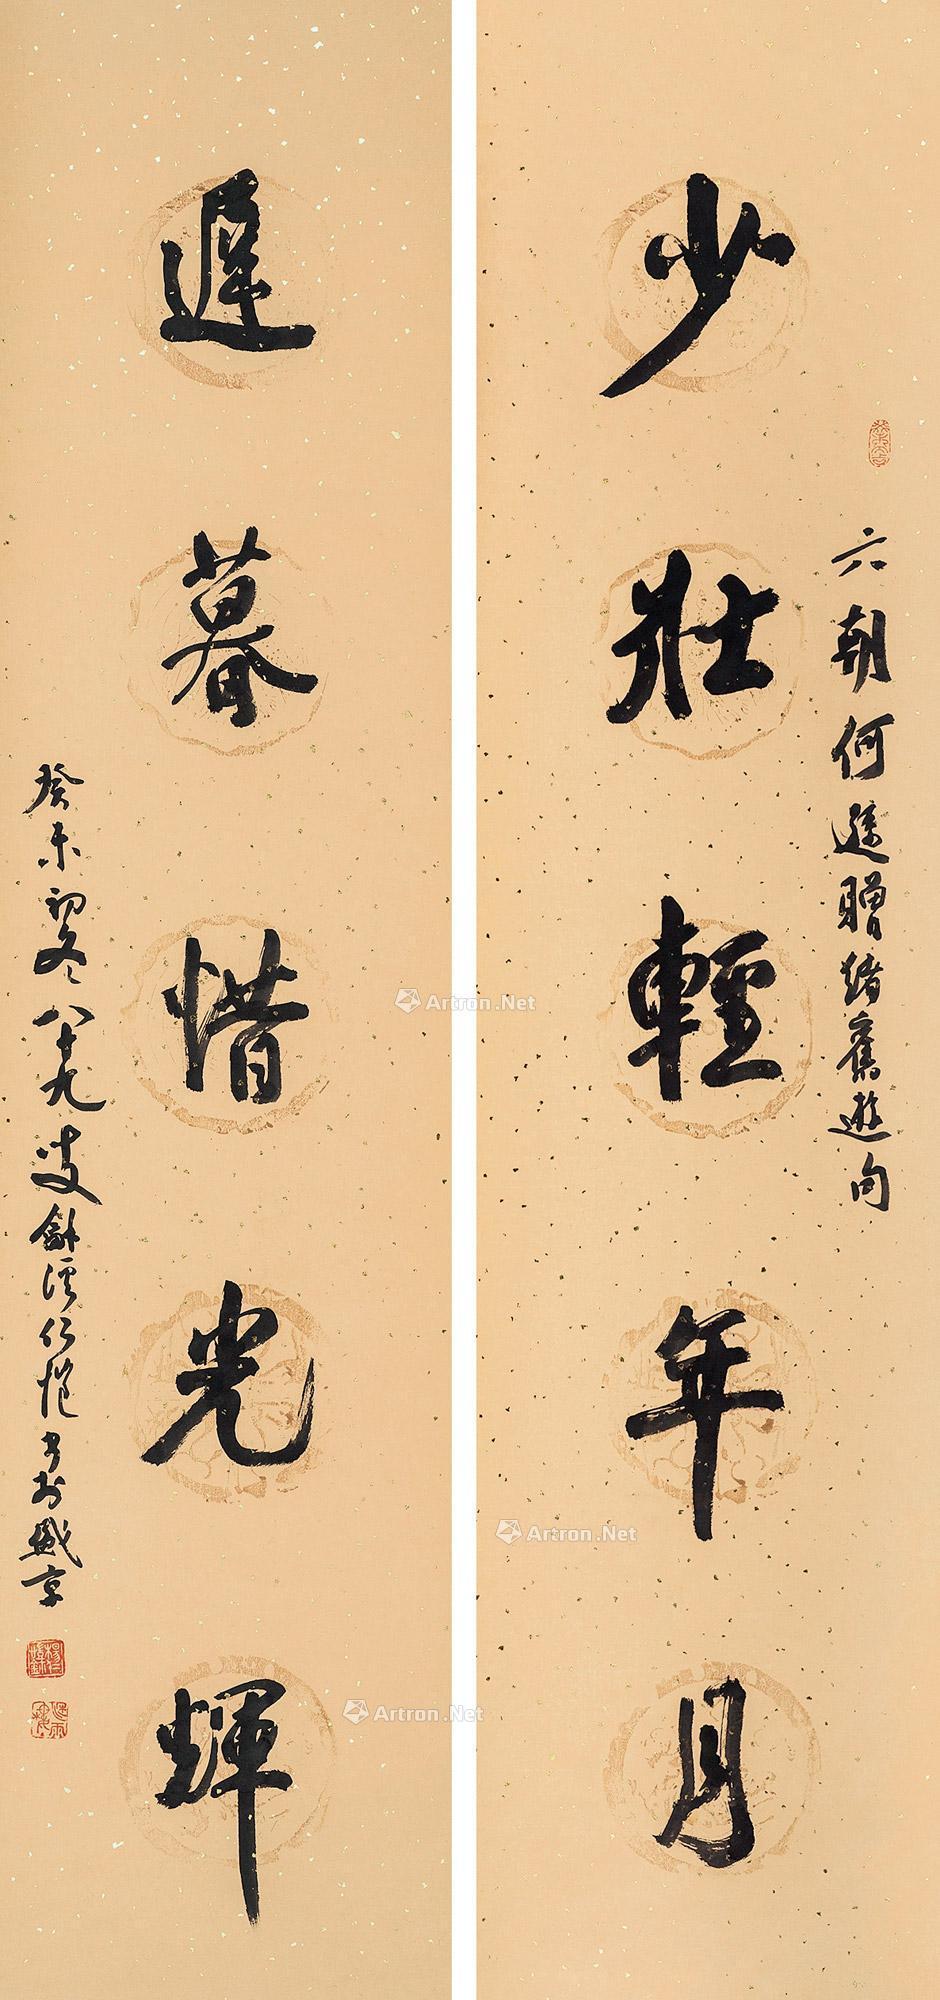 少壯輕年月
六朝何遜贈諸舊遊句
遲暮惜光輝
癸未初冬八十九叟龢溪仁愷書於盛京
Artron.Net
Artron.Net
Artron.Net